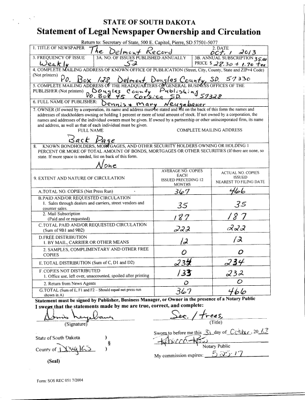 STATE OF SOUTH DAKOTA
Statement of Legal Newspaper Ownership and Circulation
Return to: Secretary of State, 500 E. Capitol, Pierre, SD 57501-5077
1. TITLE OF NEWSPAPER The Delmont Record 2. DATE Oct. 1 2013
3. FREQUENCY OF ISSUE Weekly 3A. NO. OF ISSUES PUBLISHED ANNUALLY 52 3B. ANNUAL SUBSCRIPTION PRICE
4. COMPLETE MAILING ADDRESS OF KNOWN OFFICE OF PUBLICATION (Street, City, County, State and ZIP+4 Code)
(Not printers) P.O. Box 128 Delmont Douglas County, SD 57330
5. COMPLETE MAILING ADDRESS OF THE HEADQUARTERS OR GENERAL BUSINESS OFFICES OF THE
PUBLISHER (Not printers) Douglas County Publishing
P.O. Box 45 Corsica SD 57328
6. FULL NAME OF PUBLISHER: Dennis & Mary Neugebauer
7. OWNER (If owned by a corporation, its name and address must be stated and
addresses of stockholders owning or holding 1 percent or more of total amount of stock. If not owned by a corporation, the
names and addresses of the individual owners must be given. If owned by a partnership or other unincorporated firm, its name
and address, as well as that of each individual must be given.
FULL NAME COMPLETE MAILING ADDRESS
Back Page
8. KNOWN BONDHOLDERS, MORTGAGES, AND OTHER SECURITY HOLDERS OWNING OR HOLDING 1
PERCENT OR MORE OF TOTAL AMOUNT OF BONDS, MORTGAGES OR OTHER SECURITIES (If there are none, so
state. If more space is needed, list on back of this form.
None
9. EXTENT AND NATURE OF CIRCULATION AVERAGE NO. COPIES EACH ISSUE PRECEDING 12 MONTHS ACTUAL NO. COPIES ISSUED NEAREST TO FILING DATE
A. TOTAL NO. COPIES (Net Press Run) 367 466
B. PAID AND/OR REQUESTED CIRCULATION
1. Sales through dealers and carriers, street vendors and
counter sales. 35 35
2. Mail Subscription
(Paid and/or requested) 187 187
C. TOTAL PAID AND/OR REQUESTED CIRCULATION
(Sum of 9B1 and 9B2) 222 222
D. FREE DISTRIBUTION
1. BY MAIL, CARRIER OR OTHER MEANS 12 12
2. SAMPLES, COMPLIMENTARY AND OTHER FREE
COPIES 0 0
E. TOTAL DISTRIBUTION (Sum of C, D1 and D2) 234 234
F. COPIES NOT DISTRIBUTED
1. Office use, left over, unaccounted, spoiled after printing 133 232
2. Return from News Agents 0 0
G. TOTAL (Sum of E, F1 and F2 - Should equal net press run
shown in A) 367 466
Statement must be signed by Publisher, Business Manager, or Owner in the presence of a Notary Public
I swear that the statements made by me are true, correct, and complete:
Sec. / Treas.
(Signature) (Title)
State of South Dakota )
§
County of Douglas )
Sworn to before me this day of October, 20
Notary Public
(Seal) My commission expires:
Form: SOS REC 051 7/2004